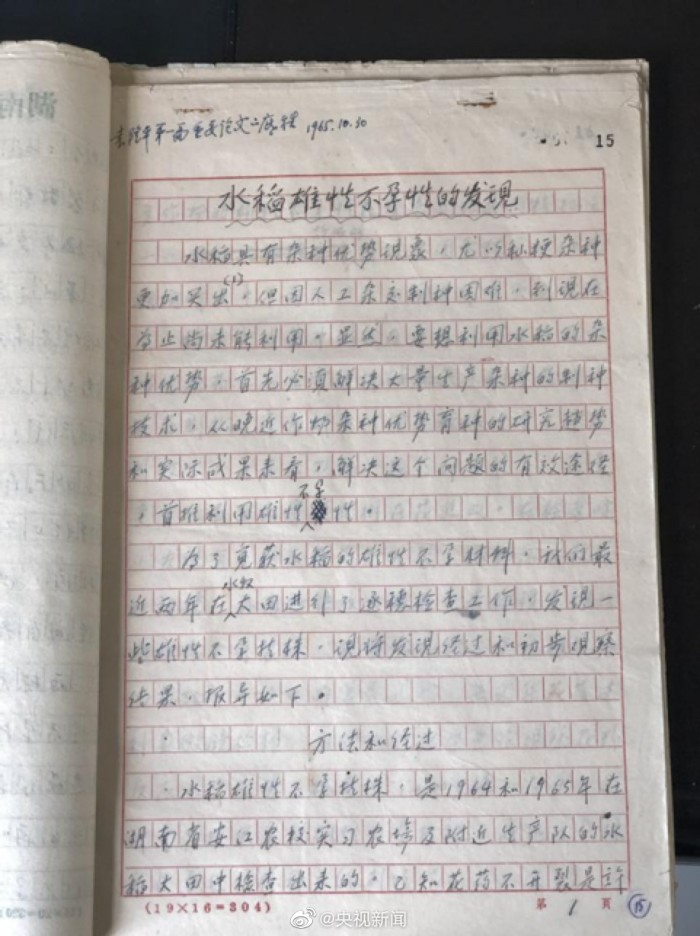 袁隆平第一篇重要论文之底稿 1965.10.30
15
水稻雄性不孕性的发现
水稻具有杂种优势现象，尤以籼粳杂种
更加突出(1)。但因人工杂交制种困难，到现在
为止尚未能利用。显然，要想利用水稻的杂
种优势，首先必须解决大量生产杂种的制种
技术。从晚近作物杂种优势育种的研究趋势
和实际成果来看，解决这个问题的有效途径
，首推利用雄性不孕性。
为了觅获水稻的雄性不孕材料，我们最
近两年在水稻大田进行了逐穗检查工作，发现一
些雄性不孕植株，现将发现经过和初步观察
结果，报导如下。
方法和经过
水稻雄性不孕植株，是1964和1965年在
湖南省安江农校实习农场及附近生产队的水
稻大田中检查出来的。已知花药不开裂是許
(19×16=304)
第 1 页
15
@央视新闻
湖南